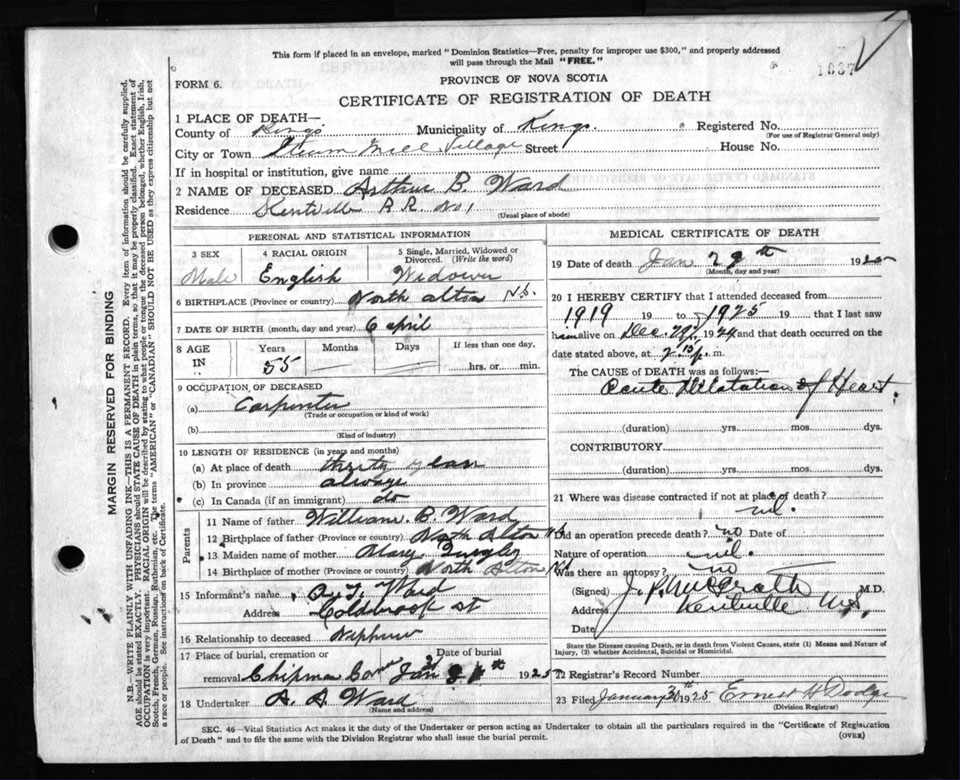 This form if placed in an envelope, marked "Dominion Statistics—Free, penalty for improper use $300," and properly addressed
will pass through the Mail "FREE."
1037
PROVINCE OF NOVA SCOTIA
FORM 6.
CERTIFICATE OF REGISTRATION OF DEATH
MARGIN RESERVED FOR BINDING
N.B.—WRITE PLAINLY WITH UNFADING INK—THIS IS A PERMANENT RECORD. Every item of information should be carefully supplied.
AGE should be stated EXACTLY. PHYSICIANS should STATE CAUSE OF DEATH in plain terms, so that it may be properly classified. Exact statement of
OCCUPATION is very important. RACIAL ORIGIN will be described by stating to what people or tongue the deceased person belonged, whether English, Irish,
Scotch, French, German, Russian, Ruthenian, etc. The terms "AMERICAN" or "CANADIAN" SHOULD NOT BE USED as they express citizenship but not
a race or people. See instructions on back of Certificate.
1 PLACE OF DEATH—
County of Kings Municipality of Kings. Registered No.
(For use of Registrar General only)
City or Town Mill Village Street House No.
If in hospital or institution, give name
2 NAME OF DECEASED Arthur B. Ward
Residence Kentville R.R. No 1
(Usual place of abode)
PERSONAL AND STATISTICAL INFORMATION
3 SEX
Male
4 RACIAL ORIGIN
English
5 Single, Married, Widowed or
Divorced. (Write the word)
Widower
6 BIRTHPLACE (Province or country) North Alton N.S.
7 DATE OF BIRTH (month, day and year) 6 april
8 AGE
IN
Years
55
Months
Days
If less than one day,
hrs. or min.
9 OCCUPATION OF DECEASED
(a) Carpenter
(Trade or occupation or kind of work)
(b)
(Kind of industry)
10 LENGTH OF RESIDENCE (in years and months)
(a) At place of death years
(b) In province always
(c) In Canada (if an immigrant) do
Parents
11 Name of father William B. Ward
12 Birthplace of father (Province or country) North Alton N.S.
13 Maiden name of mother Mary
14 Birthplace of mother (Province or country) North Alton N.S.
15 Informant's name Ward
Address Coldbrook St
16 Relationship to deceased Nephew
17 Place of burial, cremation or
removal Chipman Cor
Date of burial
Jan 1925
18 Undertaker A. A. Ward
(Name and address)
MEDICAL CERTIFICATE OF DEATH
19 Date of death Jan 1925
(Month, day and year)
20 I HEREBY CERTIFY that I attended deceased from
1919 19 to 1925 19 that I last saw
him alive on Dec. 29, 1924 and that death occurred on the
date stated above, at 7.15 p. m.
The CAUSE OF DEATH was as follows:—
Acute Dilatation of Heart.
(duration) yrs. mos. dys.
CONTRIBUTORY
(duration) yrs. mos. dys.
21 Where was disease contracted if not at place of death?
nil.
Did an operation precede death? no Date of
Nature of operation nil.
Was there an autopsy? no
(Signed) J. P. McGrath M.D.
Address Kentville N.S.
Date
State the Disease causing Death, or in death from Violent Causes, state (1) Means and Nature of
Injury, (2) whether Accidental, Suicidal or Homicidal.
22 Registrar's Record Number
23 Filed January 1925 Ernest H Dodge
(Division Registrar)
SEC. 46—Vital Statistics Act makes it the duty of the Undertaker or person acting as Undertaker to obtain all the particulars required in the "Certificate of Registration
of Death" and to file the same with the Division Registrar who shall issue the burial permit.
(OVER)